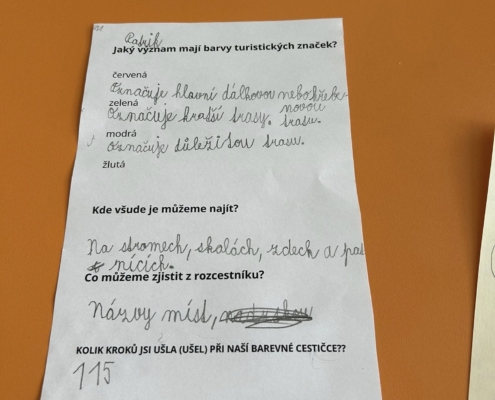 Patrik
Jaký význam mají barvy turistických značek?
červená
Označuje hlavní dálkovou nebo hřebe-
novou
zelená
Označuje kratší trasy. trasu.
modrá
Označuje důležitou trasu.
žlutá
Kde všude je můžeme najít?
Na stromech, skalách, zdech a pat
nících.
Co můžeme zjistit z rozcestníku?
Názvy míst,
KOLIK KROKŮ JSI UŠLA (UŠEL) PŘI NAŠÍ BAREVNÉ CESTIČCE??
115